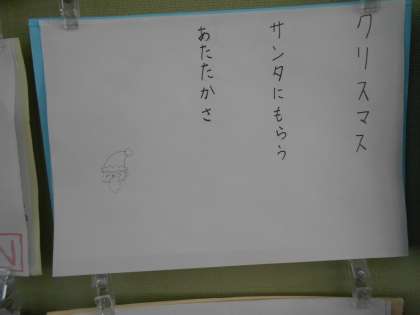 クリスマス
サンタにもらう
あたたかさ